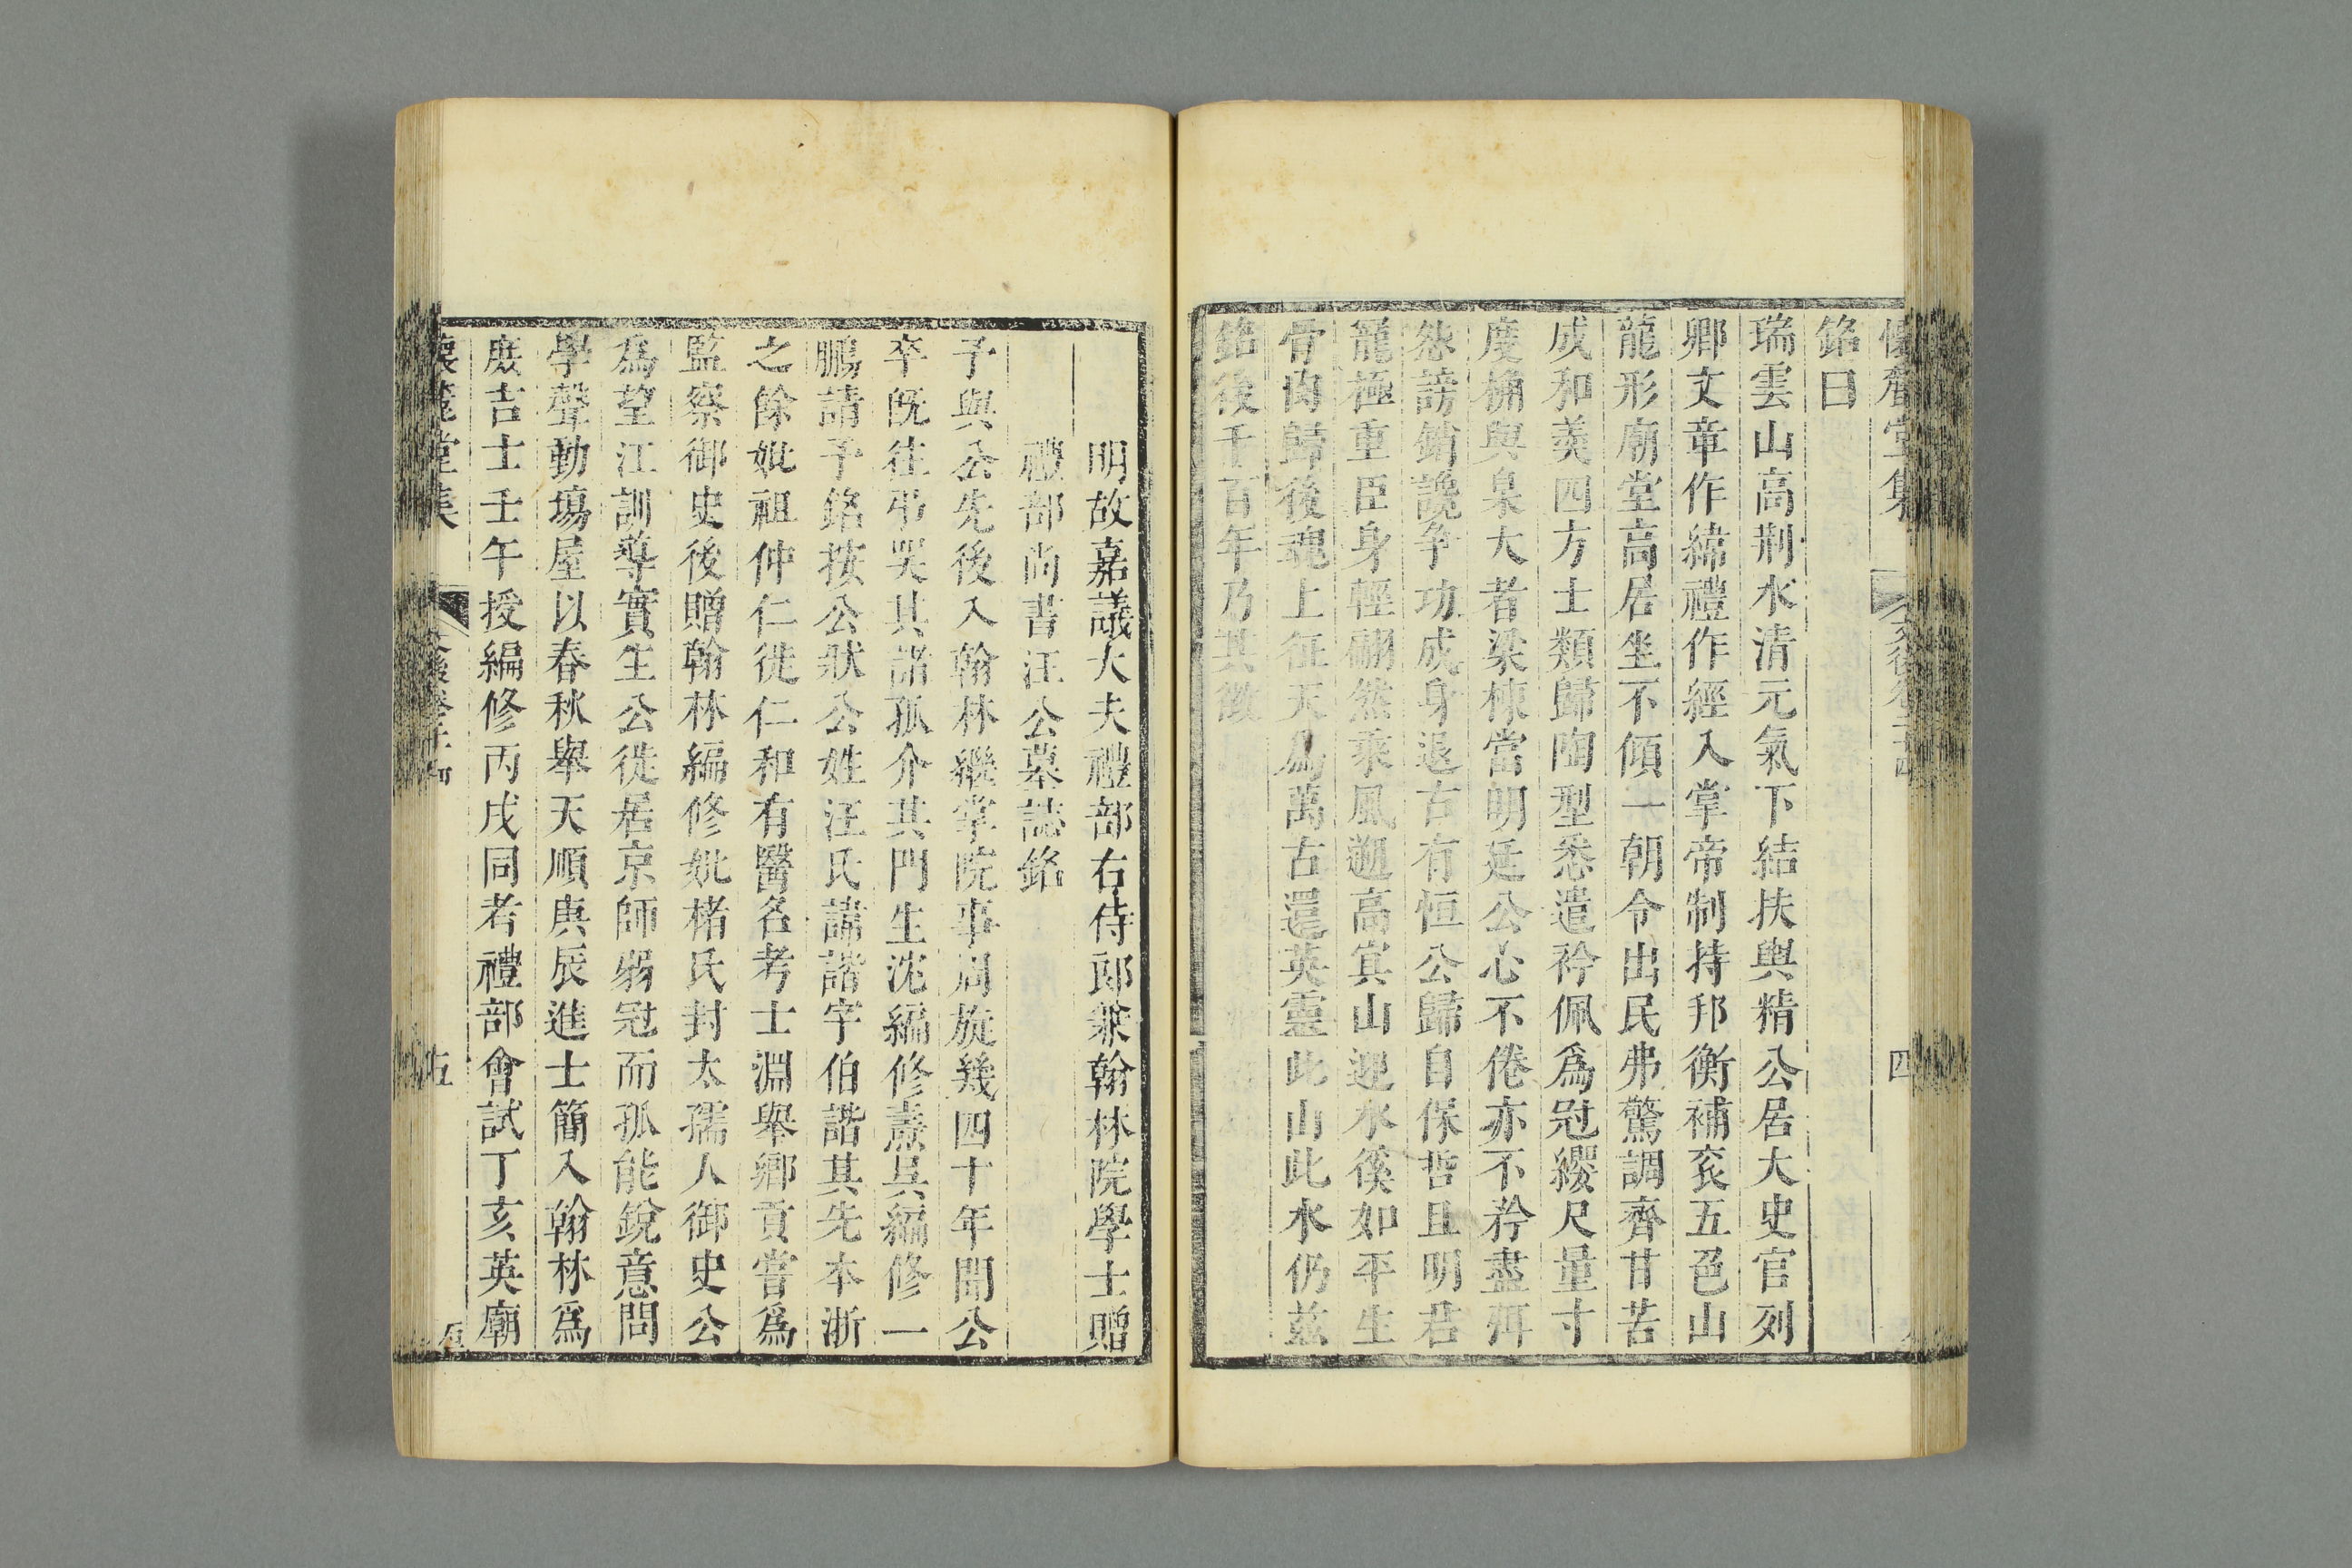 懷麓堂集
文後卷二十四
四
銘曰
瑞雲山高荆水清元氣下結扶輿精公居大史官列
卿文章作緯禮作經入掌帝制持邦衡補衮五色山
龍形廟堂高居坐不傾一朝令出民弗驚調齊甘苦
成和羹四方士類歸陶型悉遣衿佩爲冠纓尺量寸
度桷與杗大者梁棟當明廷公心不倦亦不矜盡弭
怨謗銷讒爭功成身退古有恒公歸自保哲且明君
寵極重臣身輕翩然乘風遡高寘山迎水徯如平生
骨肉歸後魂上征天爲萬古還英靈此山此水仍茲
銘後千百年乃其徵
明故嘉議大夫禮部右侍郎兼翰林院學士贈
禮部尚書汪公墓誌銘
予與公先後入翰林繼掌院事周旋幾四十年間公
卒旣往弔哭其諸孤介其門生沈編修燾吳編修一
鵬請予銘按公狀公姓汪氏諱諧字伯諧其先本浙
之餘姚祖仲仁徙仁和有醫名考士淵舉鄉貢嘗爲
監察御史後贈翰林編修妣楮氏封太孺人御史公
爲望江訓導實生公徙居京師弱冠而孤能銳意問
學聲動塲屋以春秋舉天順庚辰進士簡入翰林爲
庶吉士壬午授編修丙戌同考禮部會試丁亥英廟
懷麓堂集
文後卷二十四
五